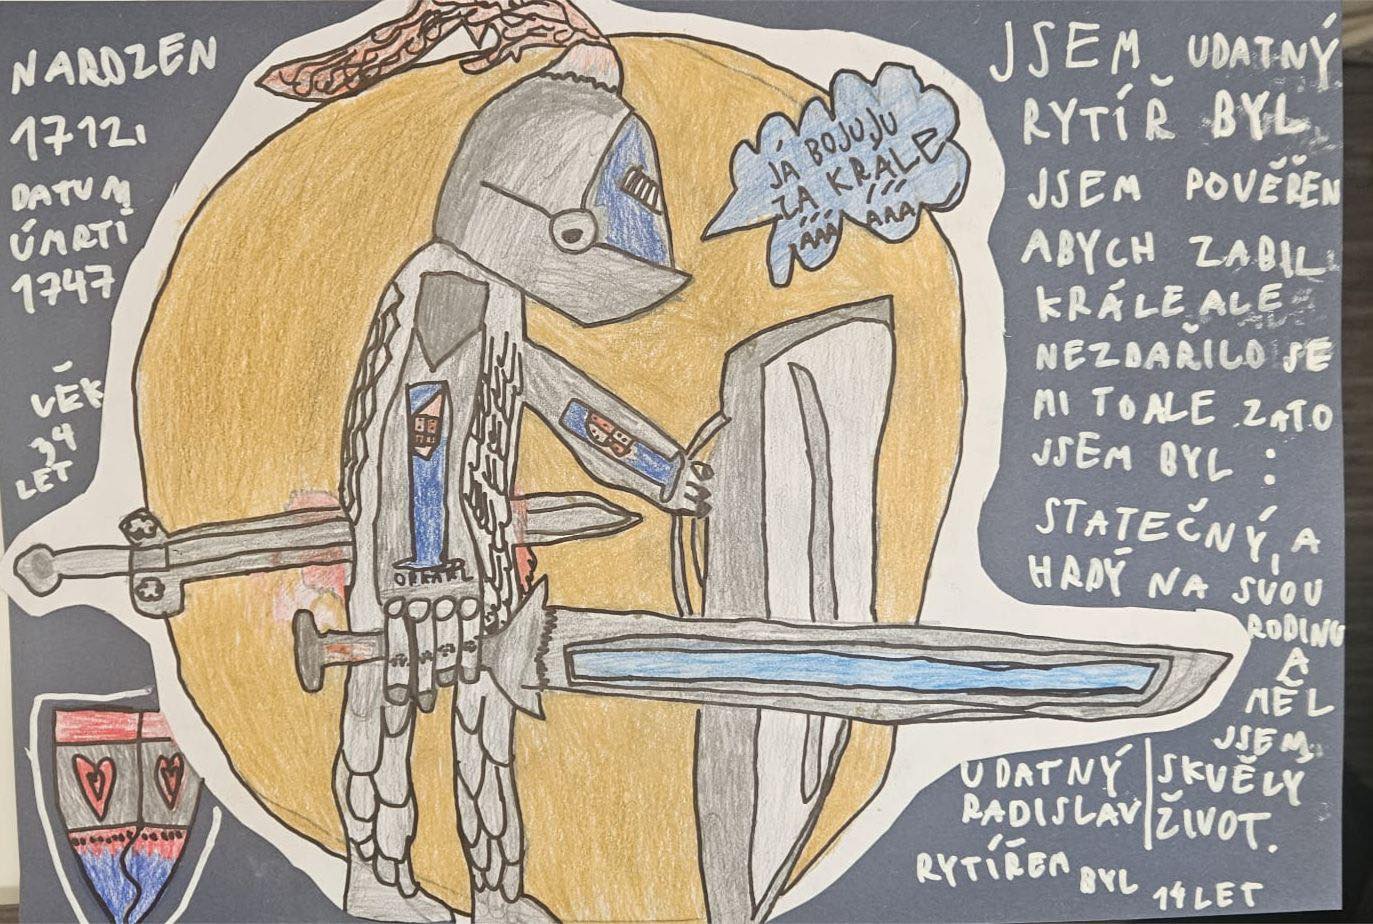 NARDZEN
1712.
DATUM
ÚMRTÍ
1747
VĚK
34
LET
JÁ BOJUJU
ZA KRÁLE
ÁÁÁ ÁÁÁ
JSEM UDATNÝ
RYTÍŘ BYL
JSEM POVĚŘEN
ABYCH ZABIL
KRÁLE ALE
NEZDAŘILO SE
MI TO ALE ZATO
JSEM BYL :
STATEČNÝ, A
HRDÝ NA SVOU
RODINU
A
MĚL
JSEM
SKVĚLÝ
ŽIVOT.
UDATNÝ
RADISLAV
RYTÍŘEM
BYL 14 LET